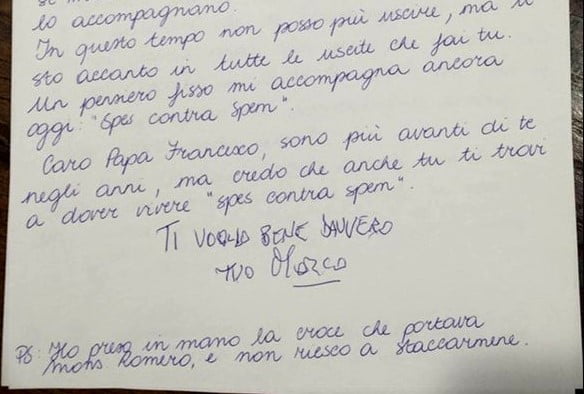 lo accompagnano.
In questo tempo non posso più uscire, ma ti
sto accanto in tutte le uscite che fai tu.
Un pensiero fisso mi accompagna ancora
oggi: "Spes contra spem".
Caro Papa Francesco, sono più avanti di te
negli anni, ma credo che anche tu ti trovi
a dover vivere "spes contra spem".
TI VOGLIO BENE DAVVERO
TUO MARCO
PS: Ho preso in mano la croce che portava
mons Romero, e non riesco a staccarmene.